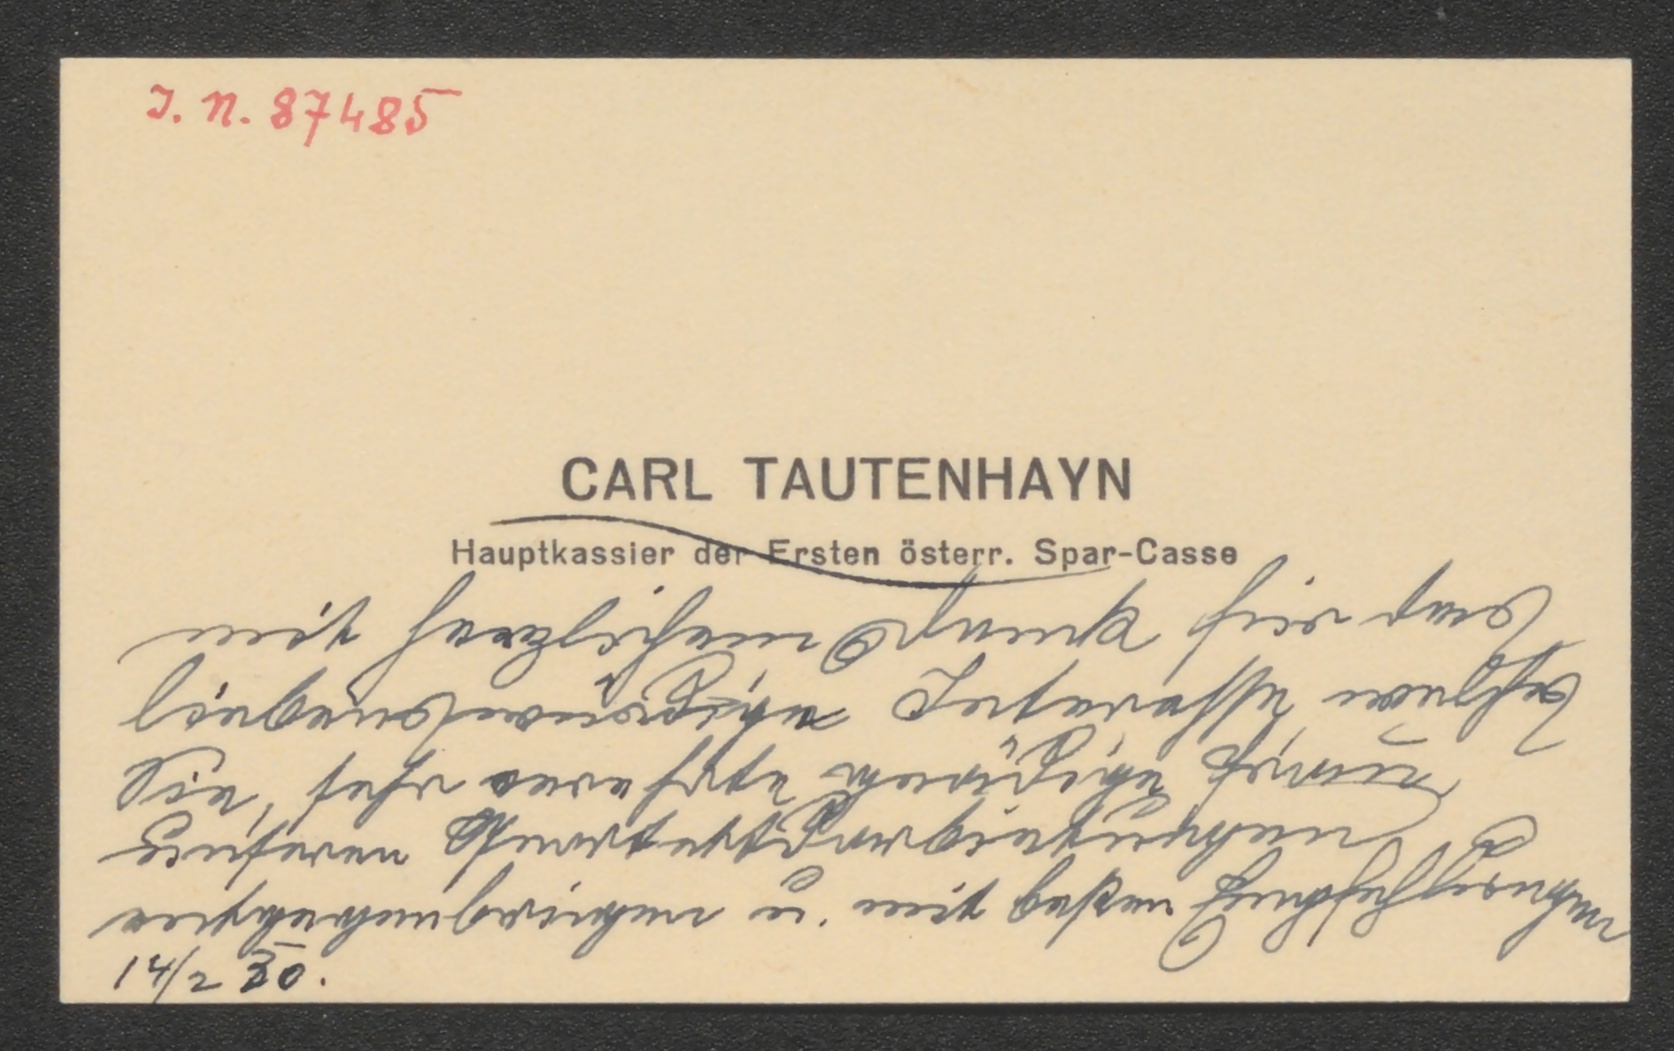 J. N. 87485
CARL TAUTENHAYN
Hauptkassier der Ersten österr. Spar-Casse
mit herzlichem Dank für das
liebenswürdige Interesse, welches
Sie, sehr verehrte gnädige Frau
unseren Quartettdarbietungen
entgegenbringen u. mit besten Empfehlungen
14/2 30.